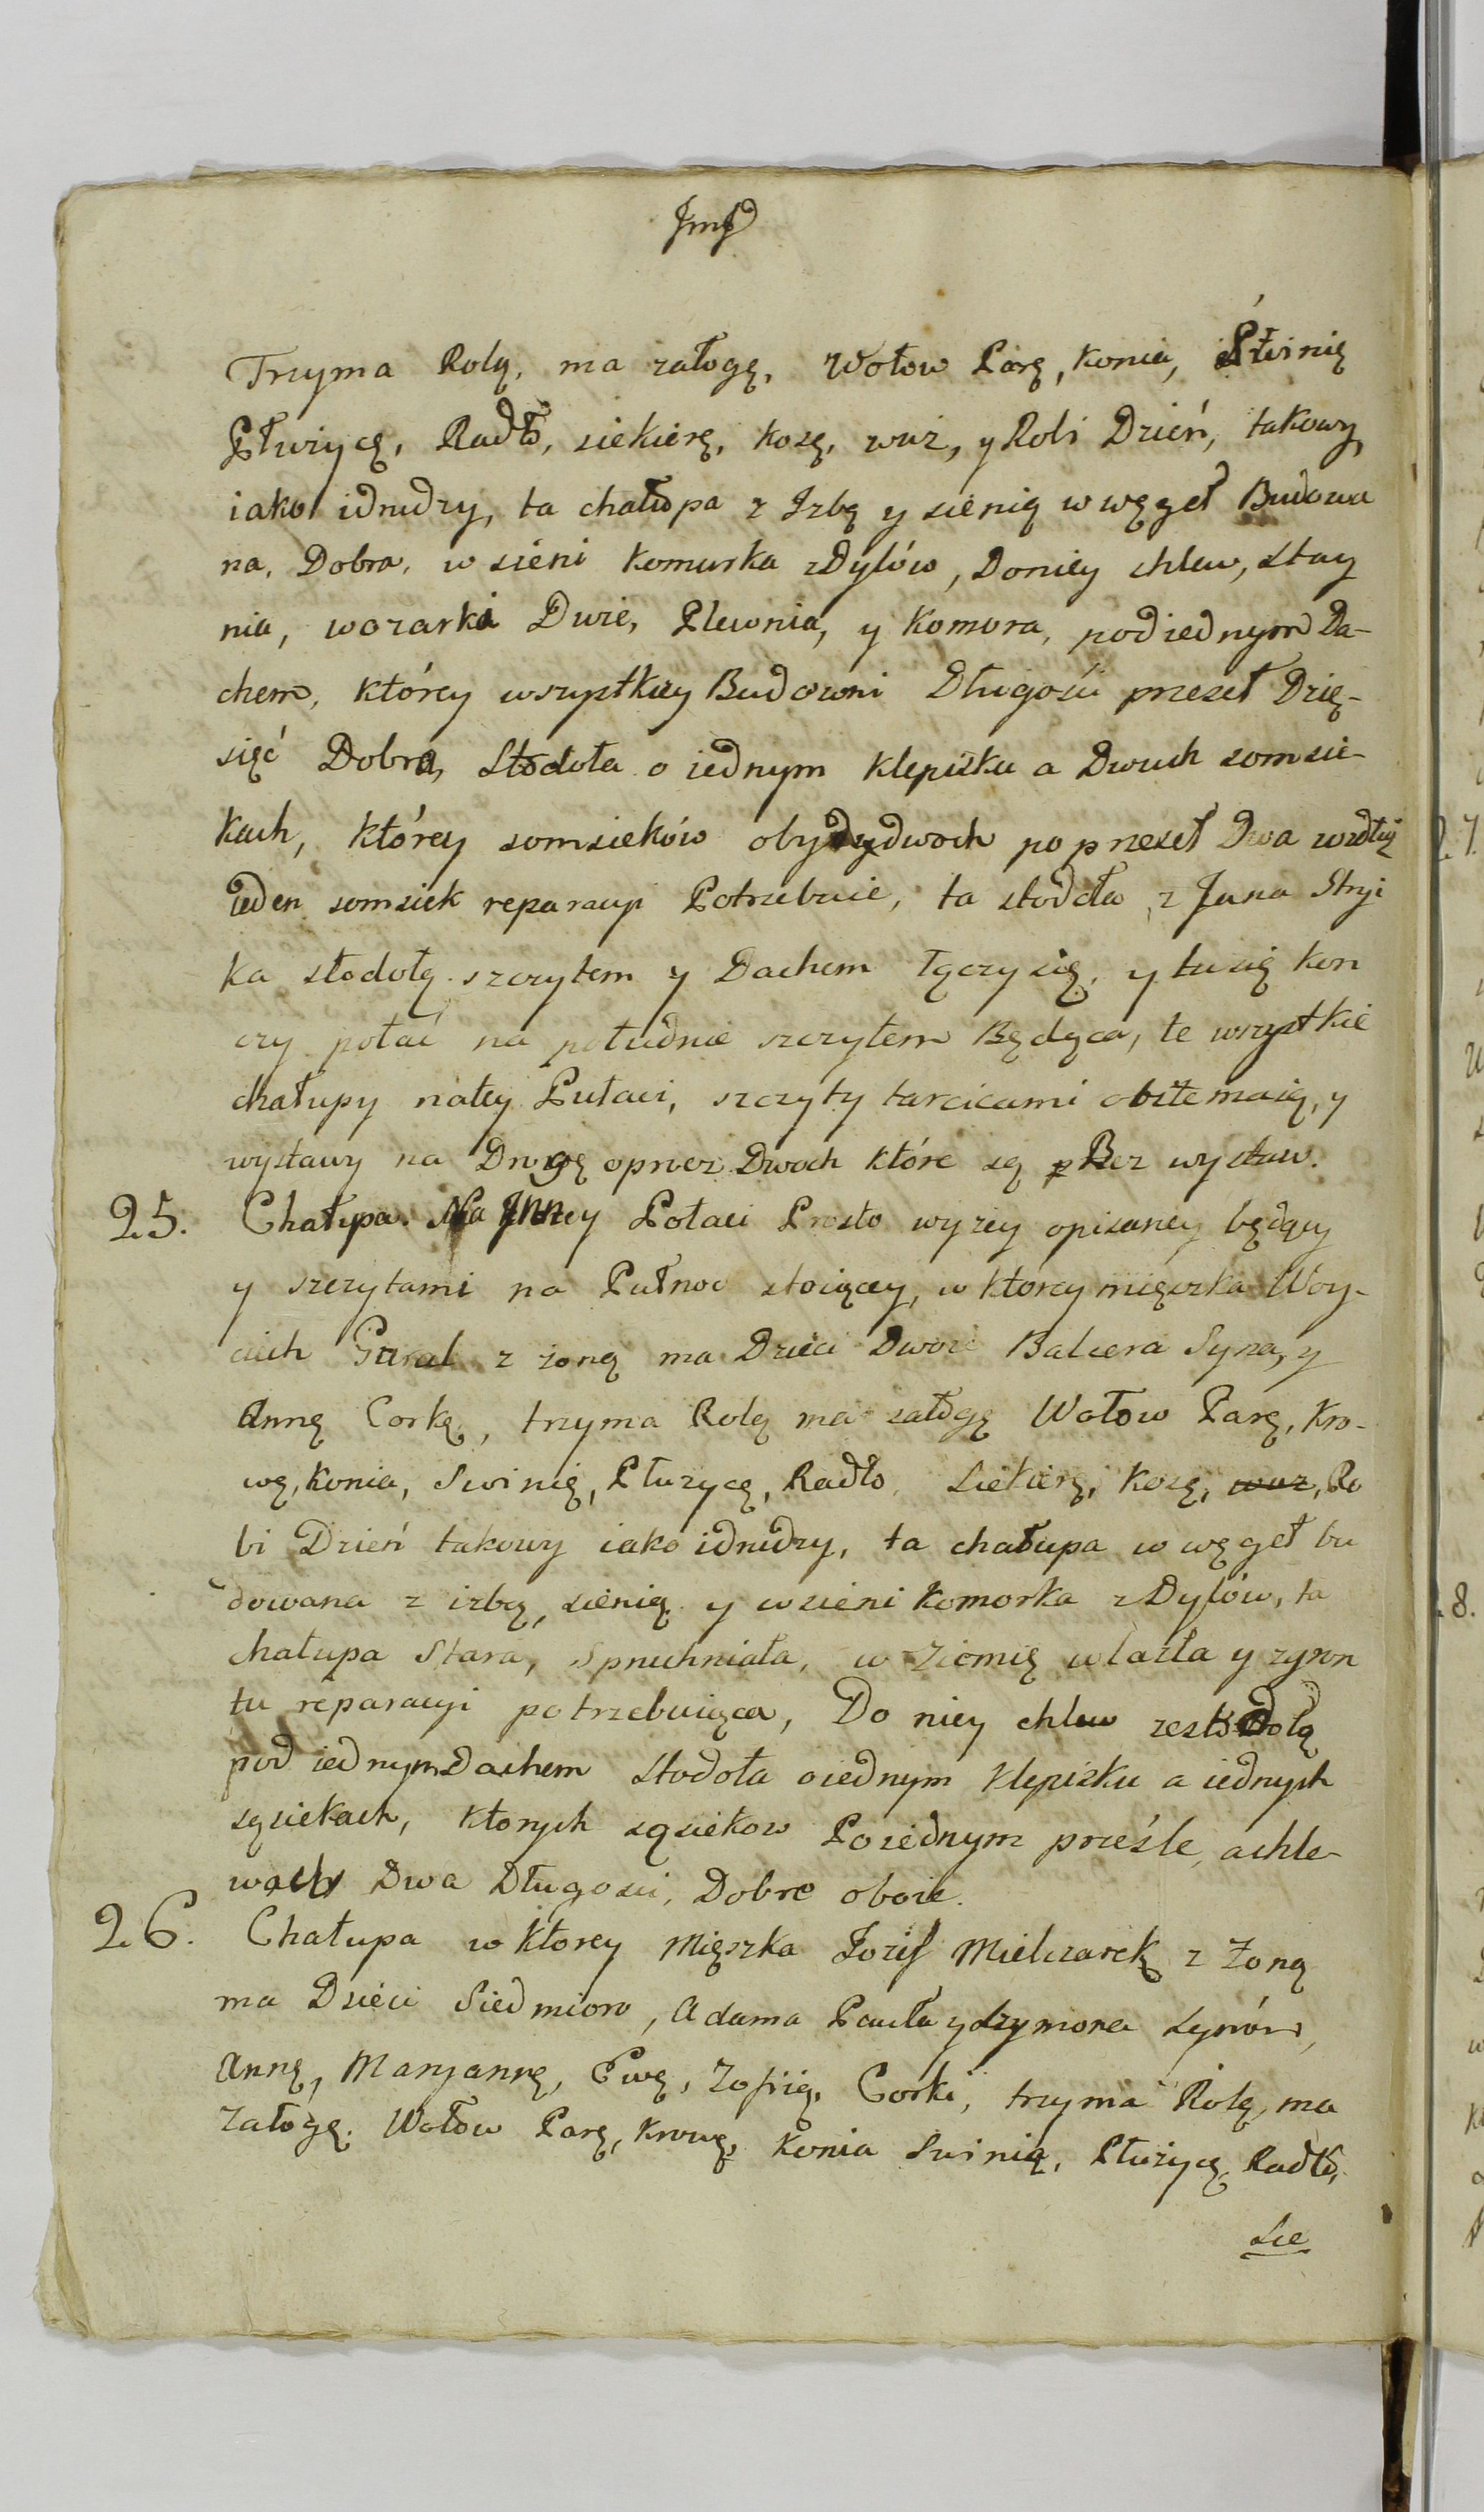 Trzyma Rolą, ma załogę, Wołow Parę, Konia, Swinię
Płużycę, Radło, siekierę, kosę, wuz, y Robi Dzień, takowy,
iako idrudzy, ta chałupa z Izbą y sienią w węgeł Budowa
na, Dobra, w sieni komurka z Dylów, Doniey chlew, stay
nia, wozarki Dwie, Plewnia, y Komora, pod iednym Da-
chem, którey wszystkiey Budowni Długości przeseł Dzię-
sięć Dobra, Stodoła o iednym klepisku a Dwuch somsie-
kach, którey somsieków obydydwoch po przeseł Dwa wzdłuż
ieden somsiek reparacyi Potrzebuie, ta stodoła z Jana Stryi
ka stodołą szczytem y Dachem łączy się, y tu się kon
czy połać na południe szczytem Będąca, te wszystkie
chałupy natey Pułaci, szczyty tarcicami obite maią, y
wystawy na Drogę oprucz Dwoch które są Bez wystaw.
25. Chałupa. Na Jnney Połaci Prosto wyzey opisaney będący
y szczytami na Pułnoc stoiącey, w ktorey mięszka Woy-
ciech Gural z żoną ma Dzieci Dwoie Balcera Syna, y
Annę Corkę, trzyma Rolą ma załogę Wołow Parę, Kro-
wę, Konia, Swinię, Płużycę, Radło, Siekierę, Kosę, wuz, Ro
bi Dzień takowy iako idrudzy, ta chałupa w węgeł bu
dowana z izbą, sienią y wsieni komorka z Dylów, ta
chałupa Stara, Spruchniała, w Ziemię wlazła y zgron
tu reparacyi potrzebuiąca, Do niey chlew zestodołą
pod iednym Dachem Stodoła o iednym klepisku a iednych
sąsiekach, ktorych sąsiekow Poiednym prześle, achle-
wach Dwa Długosci, Dobre oboie.
26. Chałupa w ktorey Mięszka Jozef Mielczarek z Żoną
ma Dzieci Siedmioro, Adama Pawła y Szymona Synów,
Annę, Maryannę, Ewę, Zofiię, Corki, trzyma Rolą, ma
Załogę. Wołow Parę, Krowę, Konia Swinię, Płużycę, Radło,
Sie